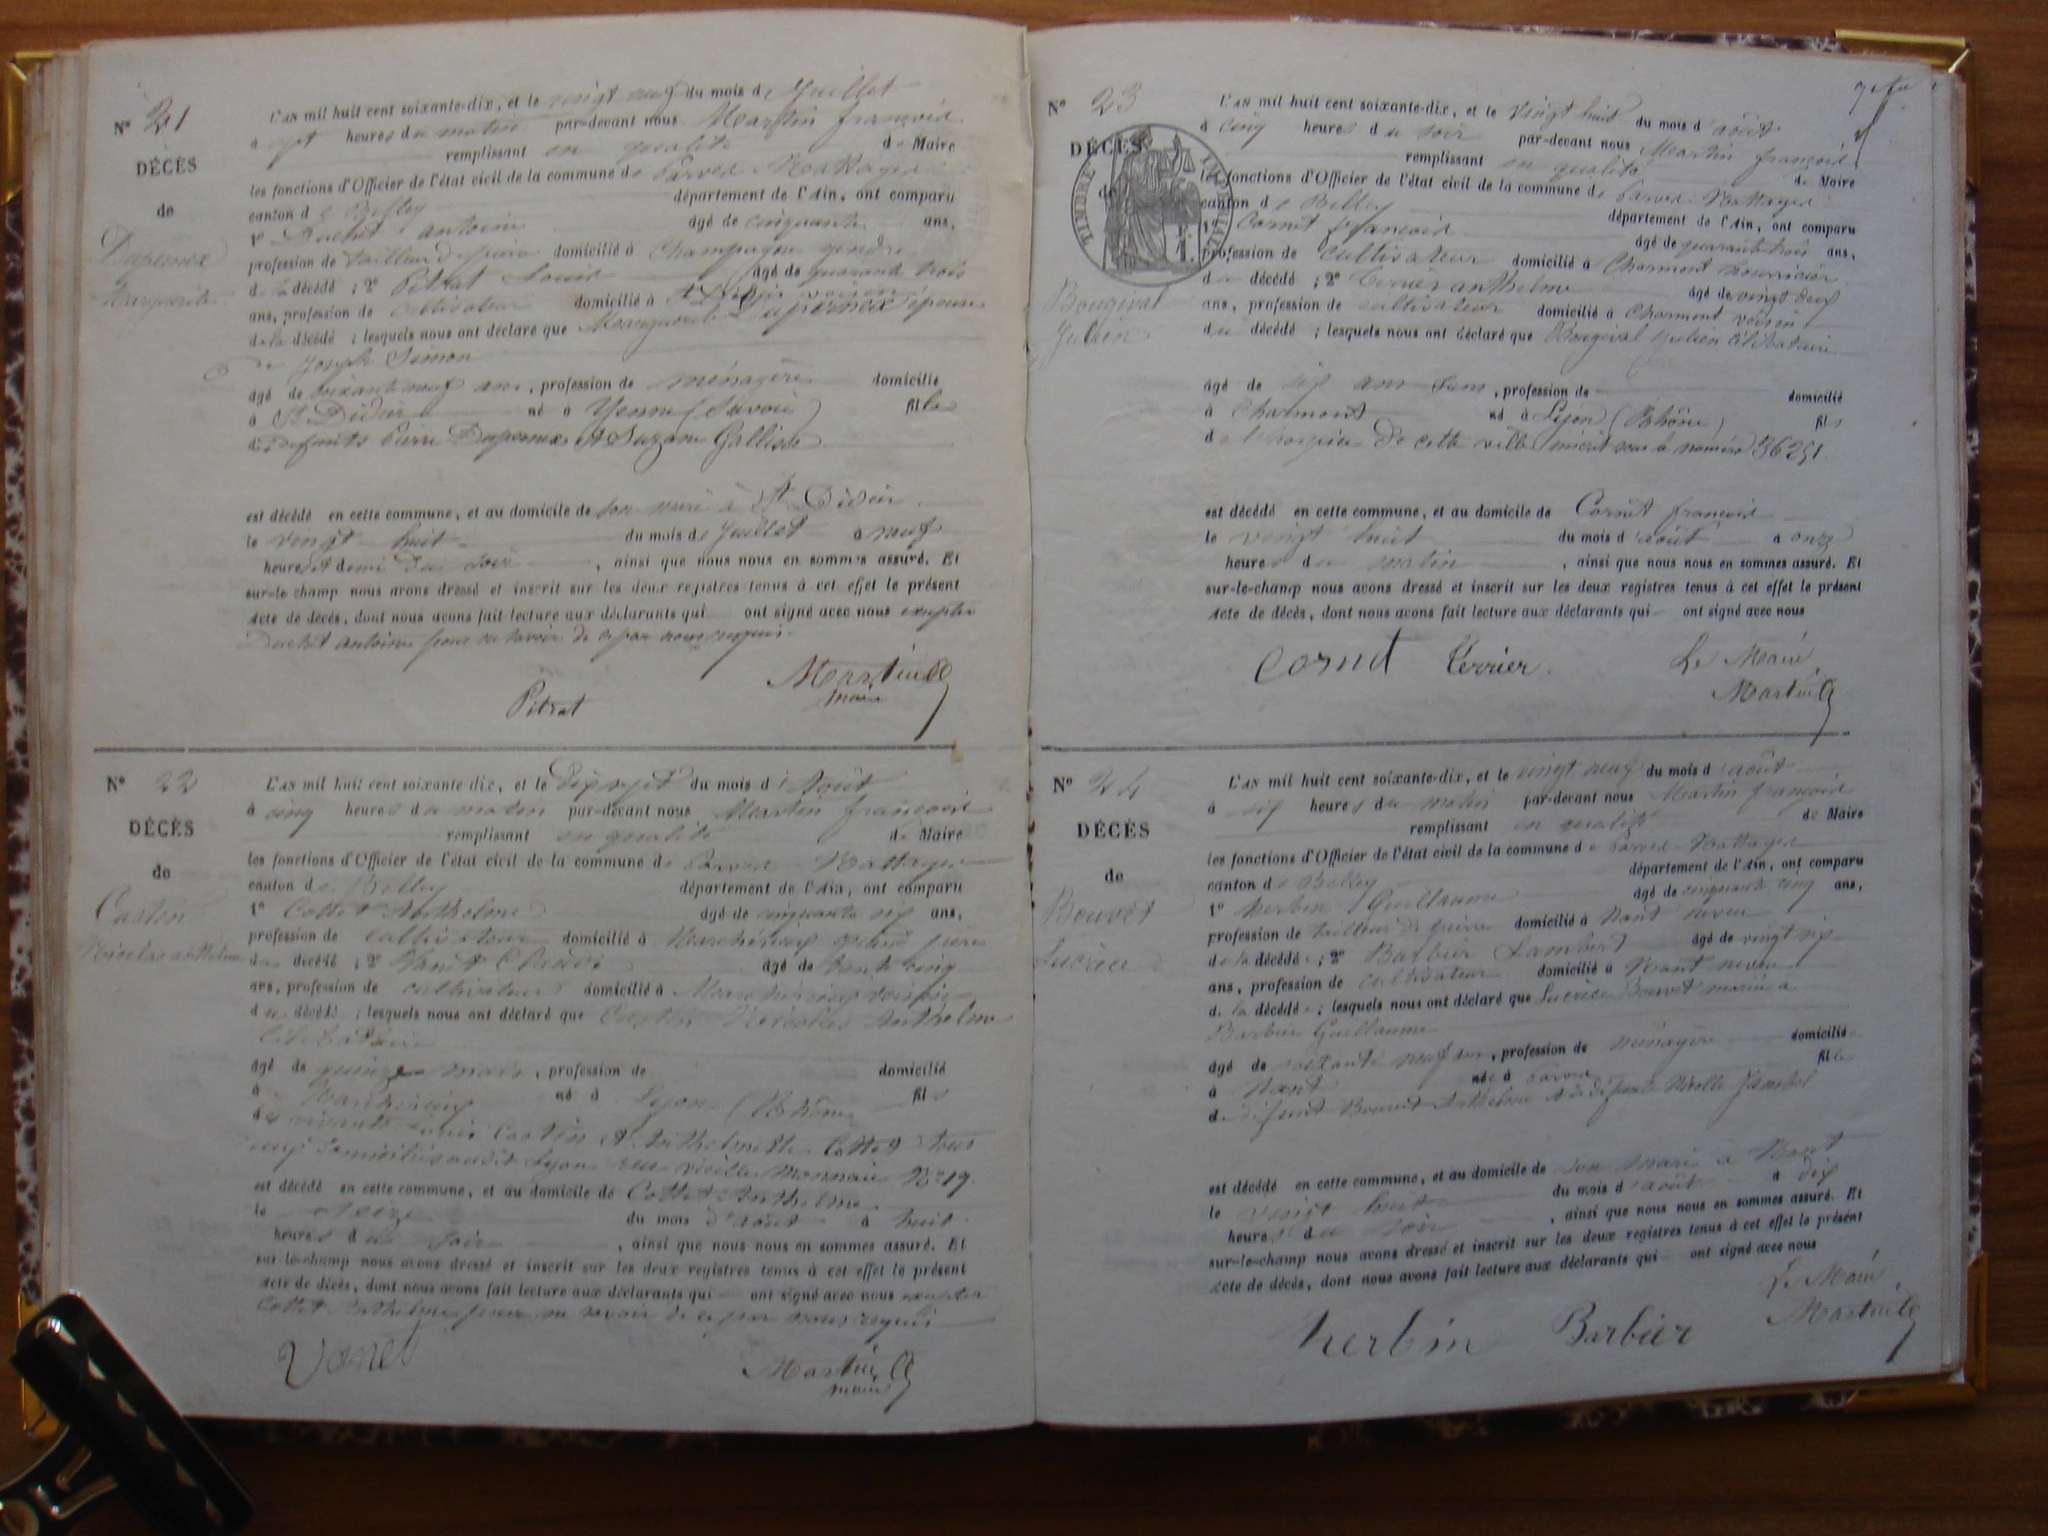 N° 21
DÉCÈS
de
Dupemex
Marguerite
L'an mil huit cent soixante-dix, et le vingt neuf du mois de Juillet
à sept heures du matin par-devant nous Martin françois
remplissant en qualité de Maire
les fonctions d'Officier de l'état civil de la commune de Parves Nattages
canton de Belley département de l'Ain, ont comparu
1° Duchet antoine âgé de cinquante ans,
profession de tailleur de pierre domicilié à Champagne gendre
de la décédé ; 2° Pittat Louis âgé de quarante trois
ans, profession de cultivateur domicilié à St Didier voisin
de la décédé ; lesquels nous ont déclaré que Marguerite Dupemex épouse
de Joseph Simon
âgé de soixante neuf ans, profession de ménagère domicilié
à St Didier né à Yenne (Savoie) fille
des défunts Pierre Dupemex et Suzane Gallisse
est décédé en cette commune, et au domicile de son mari à St Didier
le vingt huit du mois de Juillet à neuf
heures et demi du soir, ainsi que nous nous en sommes assuré. Et
sur-le champ nous avons dressé et inscrit sur les deux registres tenus à cet effet le présent
Acte de décés, dont nous avons fait lecture aux déclarants qui ont signé avec nous excepter
Duchet antoine pour ne savoir de ce par nous requis.
Pittat Martin
maire
N° 22
DÉCÈS
de
Castin
Nicolas anthelme
L'an mil huit cent soixante-dix, et le Dix sept du mois d'Août
à cinq heures du matin par-devant nous Martin françois
remplissant en qualité de Maire
les fonctions d'Officier de l'état civil de la commune de Parves Nattages
canton de Belley département de l'Ain, ont comparu
1° Cottet Anthelme âgé de cinquante six ans,
profession de cultivateur domicilié à
du décédé ; 2° Vanet Claude âgé de trente cinq
ans, profession de cultivateur domicilié à voisin
du décédé ; lesquels nous ont déclaré que Castin Nicolas Anthelme
Célibataire
âgé de quinze mois, profession de domicilié
à né à Lyon (Rhône) fils
de vivants Louis Castin et Anthelmette Cottet tous
deux domiciliés audit Lyon rue vieille Monnaie N° 19.
est décédé en cette commune, et au domicile de Cottet Anthelme
le seize du mois d'août à huit
heures du soir, ainsi que nous nous en sommes assuré. Et
sur-le-champ nous avons dressé et inscrit sur les deux registres tenus à cet effet le présent
Acte de décès, dont nous avons fait lecture aux déclarants qui ont signé avec nous excepter
Cottet Anthelme pour ne savoir de ce par nous requis
Vanet Martin
maire
N° 23
DÉCÈS
de
TIMBRE IMPERIAL
Bougival
Julien
L'an mil huit cent soixante-dix, et le vingt huit du mois d'août
à cinq heures du soir par-devant nous Martin françois
remplissant en qualité de Maire
les fonctions d'Officier de l'état civil de la commune de Parves Nattages
canton de Belley département de l'Ain, ont comparu
1° Cornet françois âgé de quarante trois ans,
profession de cultivateur domicilié à Charmont nourricier
du décédé ; 2° Terrier anthelme âgé de vingt deux
ans, profession de cultivateur domicilié à Charmont voisin
du décédé ; lesquels nous ont déclaré que Bougival Julien Célibataire
âgé de six ans sans, profession de domicilié
à Charmont né à Lyon (Rhône) fils
de l'hospice de cette ville inscrit sous le numéro 36251.
est décédé en cette commune, et au domicile de Cornet françois
le vingt huit du mois d'août à onze
heures du matin, ainsi que nous nous en sommes assuré. Et
sur-le-champ nous avons dressé et inscrit sur les deux registres tenus à cet effet le présent
Acte de décès, dont nous avons fait lecture aux déclarants qui ont signé avec nous
Cornet Terrier Le Maire
Martin
N° 24
DÉCÈS
de
Bouvet
Lucrèce
L'an mil huit cent soixante-dix, et le vingt neuf du mois d'août
à six heures du matin par-devant nous Martin françois
remplissant en qualité de Maire
les fonctions d'Officier de l'état civil de la commune de Parves Nattages
canton de Belley département de l'Ain, ont comparu
1° herbin Guillaume âgé de cinquante cinq ans,
profession de tailleur de pierre domicilié à Nant neveu
de la décédé ; 2° Barbier Lambert âgé de vingt six
ans, profession de cultivateur domicilié à Nant neveu
de la décédé ; lesquels nous ont déclaré que Lucrèce Bouvet mariée à
Barbier Guillaume
âgé de soixante neuf ans, profession de ménagère domicilié
à Nant née à Parves fille
de défunt Bouvet Anthelme et de défunte
est décédé en cette commune, et au domicile de son mari à Nant
le vingt huit du mois d'août à dix
heures du soir, ainsi que nous nous en sommes assuré. Et
sur-le-champ nous avons dressé et inscrit sur les deux registres tenus à cet effet le présent
Acte de décès, dont nous avons fait lecture aux déclarants qui ont signé avec nous
Le Maire
herbin Barbier Martin